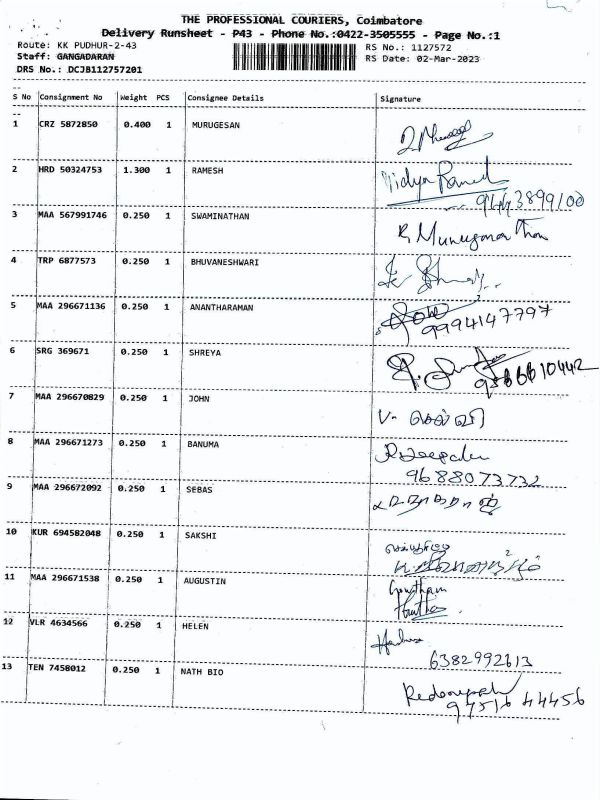 THE PROFESSIONAL COURIERS, Coimbatore
Delivery Runsheet - P43 - Phone No.:0422-3505555 - Page No.:1
Route: KK PUDHUR-2-43 RS No.: 1127572
Staff: GANGADARAN RS Date: 02-Mar-2023
DRS No.: DCJB112757201
S No Consignment No Weight PCS Consignee Details Signature
1 CRZ 5872850 0.400 1 MURUGESAN
2 HRD 50324753 1.300 1 RAMESH Vidya
9443899100
3 MAA 567991746 0.250 1 SWAMINATHAN R
4 TRP 6877573 0.250 1 BHUVANESHWARI
5 MAA 296671136 0.250 1 ANANTHARAMAN
9994147797
6 SRG 369671 0.250 1 SHREYA
7 MAA 296670829 0.250 1 JOHN V. செல்வி
8 MAA 296671273 0.250 1 BANUMA
9688073732
9 MAA 296672092 0.250 1 SEBAS
10 KUR 694582048 0.250 1 SAKSHI
11 MAA 296671538 0.250 1 AUGUSTIN Gowtham
12 VLR 4634566 0.250 1 HELEN
6382992613
13 TEN 7458012 0.250 1 NATH BIO
97516 44456